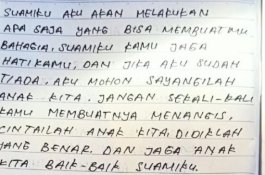 SUAMIKU AKU AKAN MELAKUKAN
APA SAJA YANG BISA MEMBUATMU
BAHAGIA, SUAMIKU KAMU JAGA
HATI KAMU, DAN JIKA AKU SUDAH
TIADA. AKU MOHON SAYANGILAH
ANAK KITA. JANGAN SEKALI-KALI
KAMU MEMBUATNYA MENANGIS,
CINTAILAH ANAK KITA, DIDIKLAH
YANG BENAR. DAN JAGA ANAK
KITA BAIK-BAIK SUAMIKU.